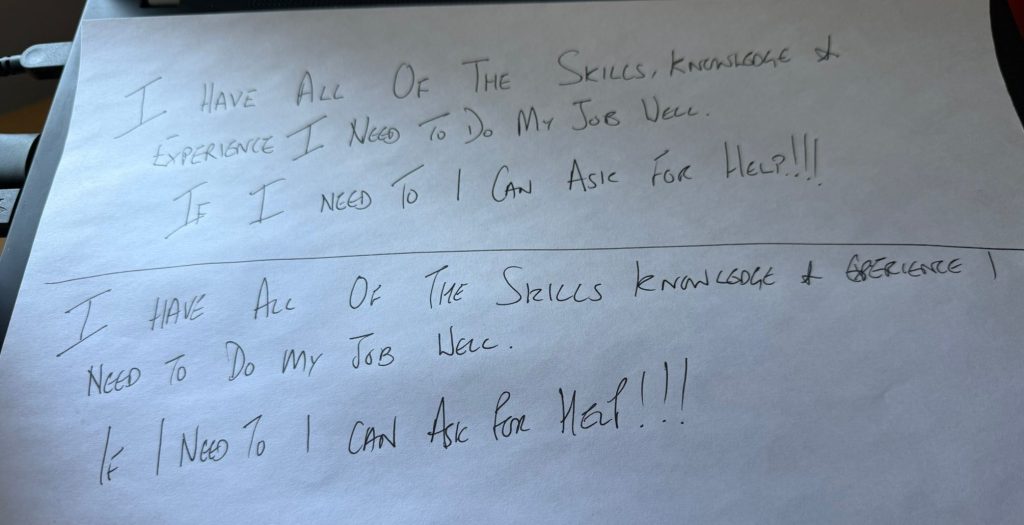 I HAVE ALL OF THE SKILLS, KNOWLEDGE &
EXPERIENCE I NEED TO DO MY JOB WELL.
IF I NEED TO I CAN ASK FOR HELP!!!
I HAVE ALL OF THE SKILLS KNOWLEDGE & EXPERIENCE I
NEED TO DO MY JOB WELL.
IF I NEED TO I CAN ASK FOR HELP!!!